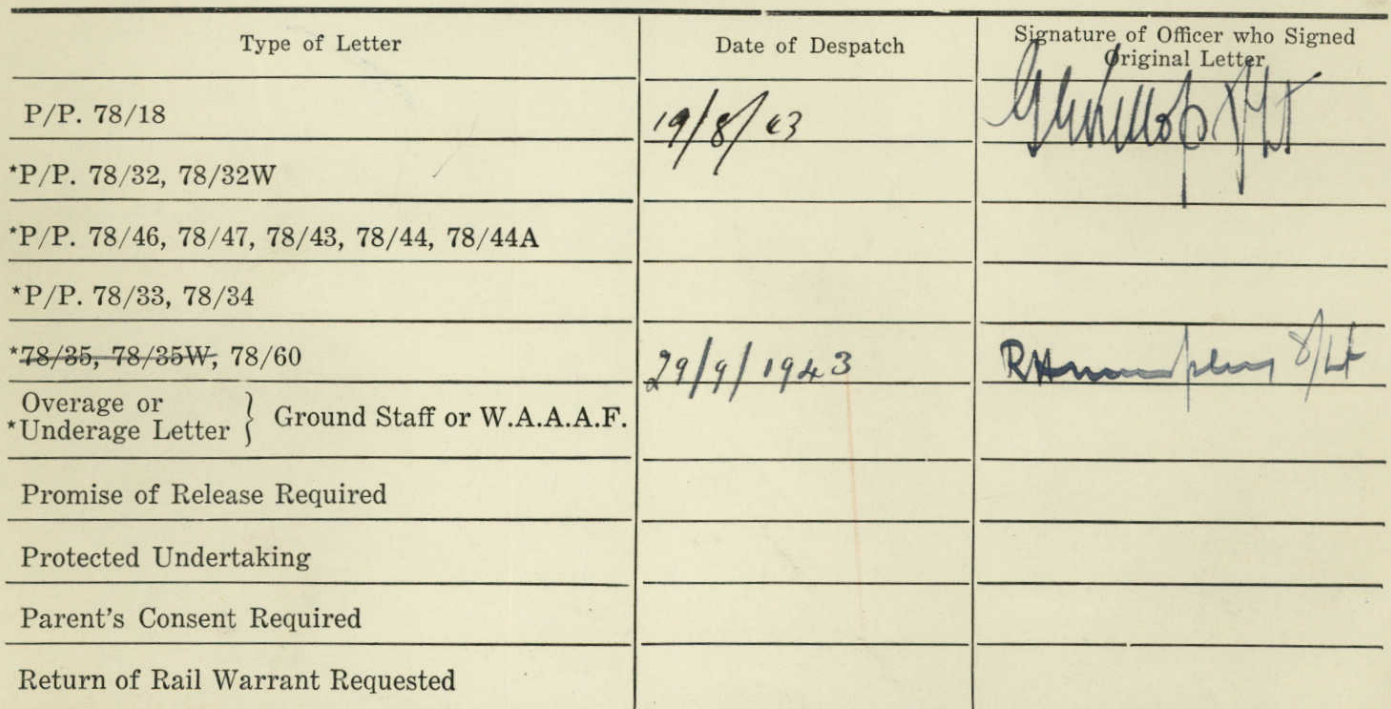 Type of Letter
Date of Despatch
Signature of Officer who Signed
Original Letter
P/P. 78/18
19/8/43
F/Lt
*P/P. 78/32, 78/32W
*P/P. 78/46, 78/47, 78/43, 78/44, 78/44A
*P/P. 78/33, 78/34
*78/35, 78/35W, 78/60
29/9/1943
F/Lt
Overage or
*Underage Letter } Ground Staff or W.A.A.A.F.
Promise of Release Required
Protected Undertaking
Parent's Consent Required
Return of Rail Warrant Requested